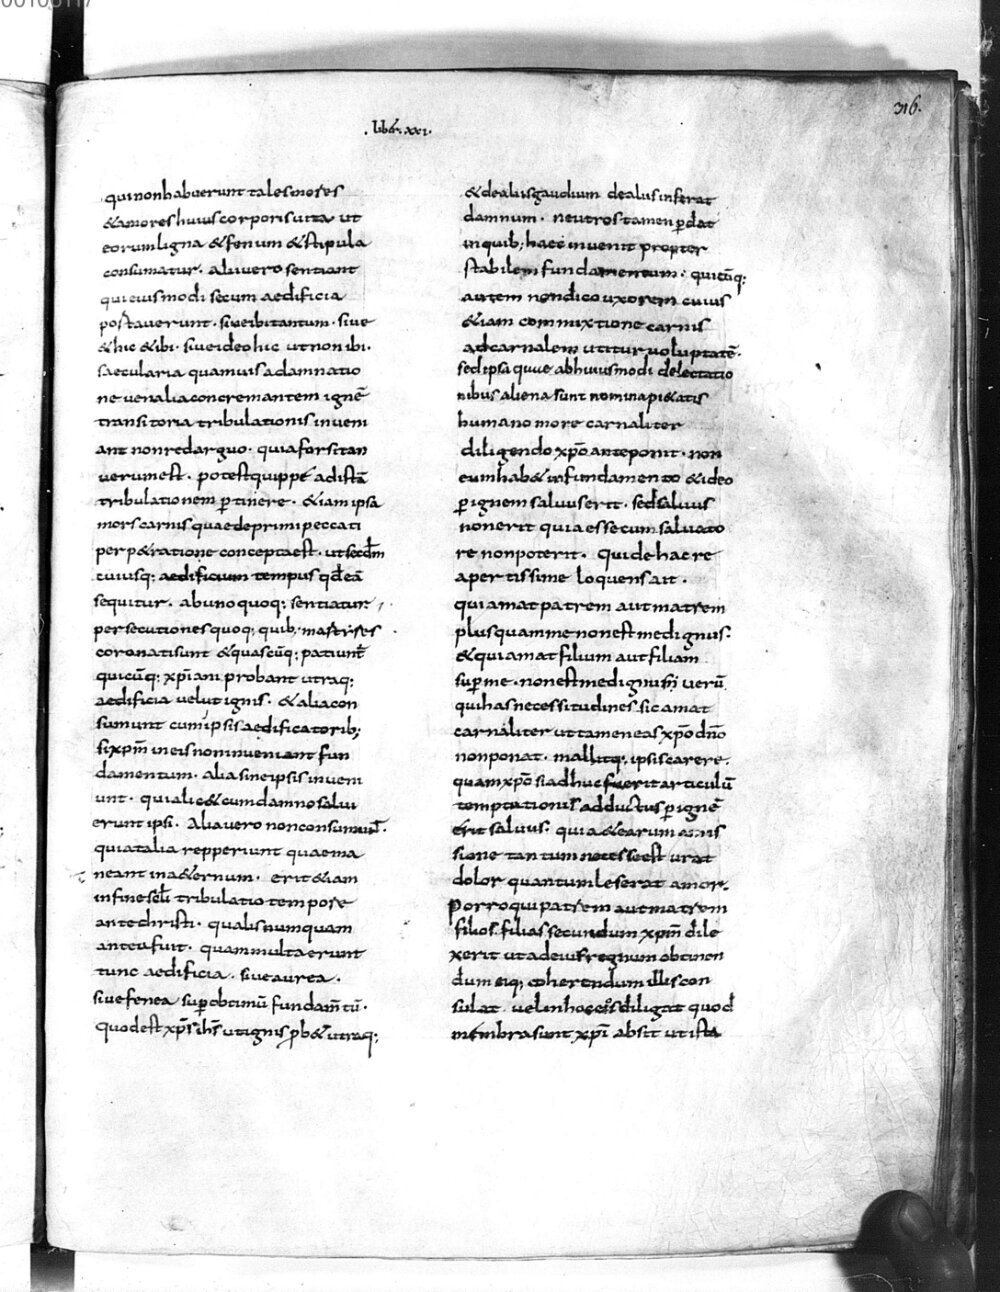 00106117
316.
. lib̄. xxi.
qui non habuerunt tales mores
& amores huius corporis uita ut
eorum ligna & fenum & stipula
consumatur. alii uero sentiant
qui eiusmodi secum aedificia
portauerunt. siue ibi tantum. siue
& hic & ibi. siue ideo hic ut non ibi.
saecularia quamuis a damnatio
ne uenalia concremantem ignē
transitoria tribulationis inueni
ant non redarguo. quia forsitan
uerum est. potest quippe ad istā
tribulationem ꝑtinere. & iam ipsa
mors carnis quae de primi peccati
perp&ratione concepta est. ut secdm̄
cuiusq; aedificium tempus qd̄ eā
sequitur. ab uno quoq; sentiatur,
persecutiones quoq; quib; martyres
coronati sunt & quascūq; patiunt̄
quicūq; xp̄iani probant utraq;
aedificia uelut ignis. & alia con
sumunt cum ipsis aedificatorib;
si xp̄m in eis non inueniant fun
damentum. alia sine ipsis inueni
unt. qui a lic& cum damno salui
erunt ipsi. Alia uero non consumūt.
quia talia repperiunt quae ma
neant in a&ernum. erit &iam
in fine sēli tribulatio tempore
antechristi. qualis numquam
antea fuit. quam multa erunt
tunc aedificia. siue aurea.
siue fenea suꝑ obtimū fundam̄tū.
quod est xp̄s ih̄s ut ignis ꝓb& utraq;
& de aliis gaudium de aliis inferat
damnum. neutros tamen ꝑdat
in quib; haec inuenit propter
stabilem fundamentum. quicūq;
autem non dico uxorem cuius
&iam commixtione carnis
ad carnalem utitur uoluptatē.
sed ipsa quae ab huiusmodi delectatio
nibus aliena sunt nomina pi&atis
humano more carnaliter
diligendo xp̄o anteponit. non
eum hab& in fundamento & ideo
ꝑ ignem saluus erit. sed saluus
non erit quia esse cum saluato
re non poterit. Qui de hac re
apertissime loquens ait.
qui amat patrem aut matrem
plus quam me non est me dignus.
& qui amat filium aut filiam
suꝑ me. non est me dignus uerū
qui has necessitudines sic amat
carnaliter ut tamen eas xp̄o dn̄o
non ponat. mallitq; ipsis carere.
quam xp̄o si ad huc fuerit articulū
temptationis adductus ꝑ ignē
erit saluus. quia & earum amis
sione tantum necesse est urat
dolor quantum heserat amor.
Porro qui patrem aut matrem
filios. filias secundum xp̄m dile
xerit ut ad eius regnum obtinen
dum eiq; coherendum illis con
sulat. uel in hoc eos diligat quod
membra sunt xp̄i absit ut ista